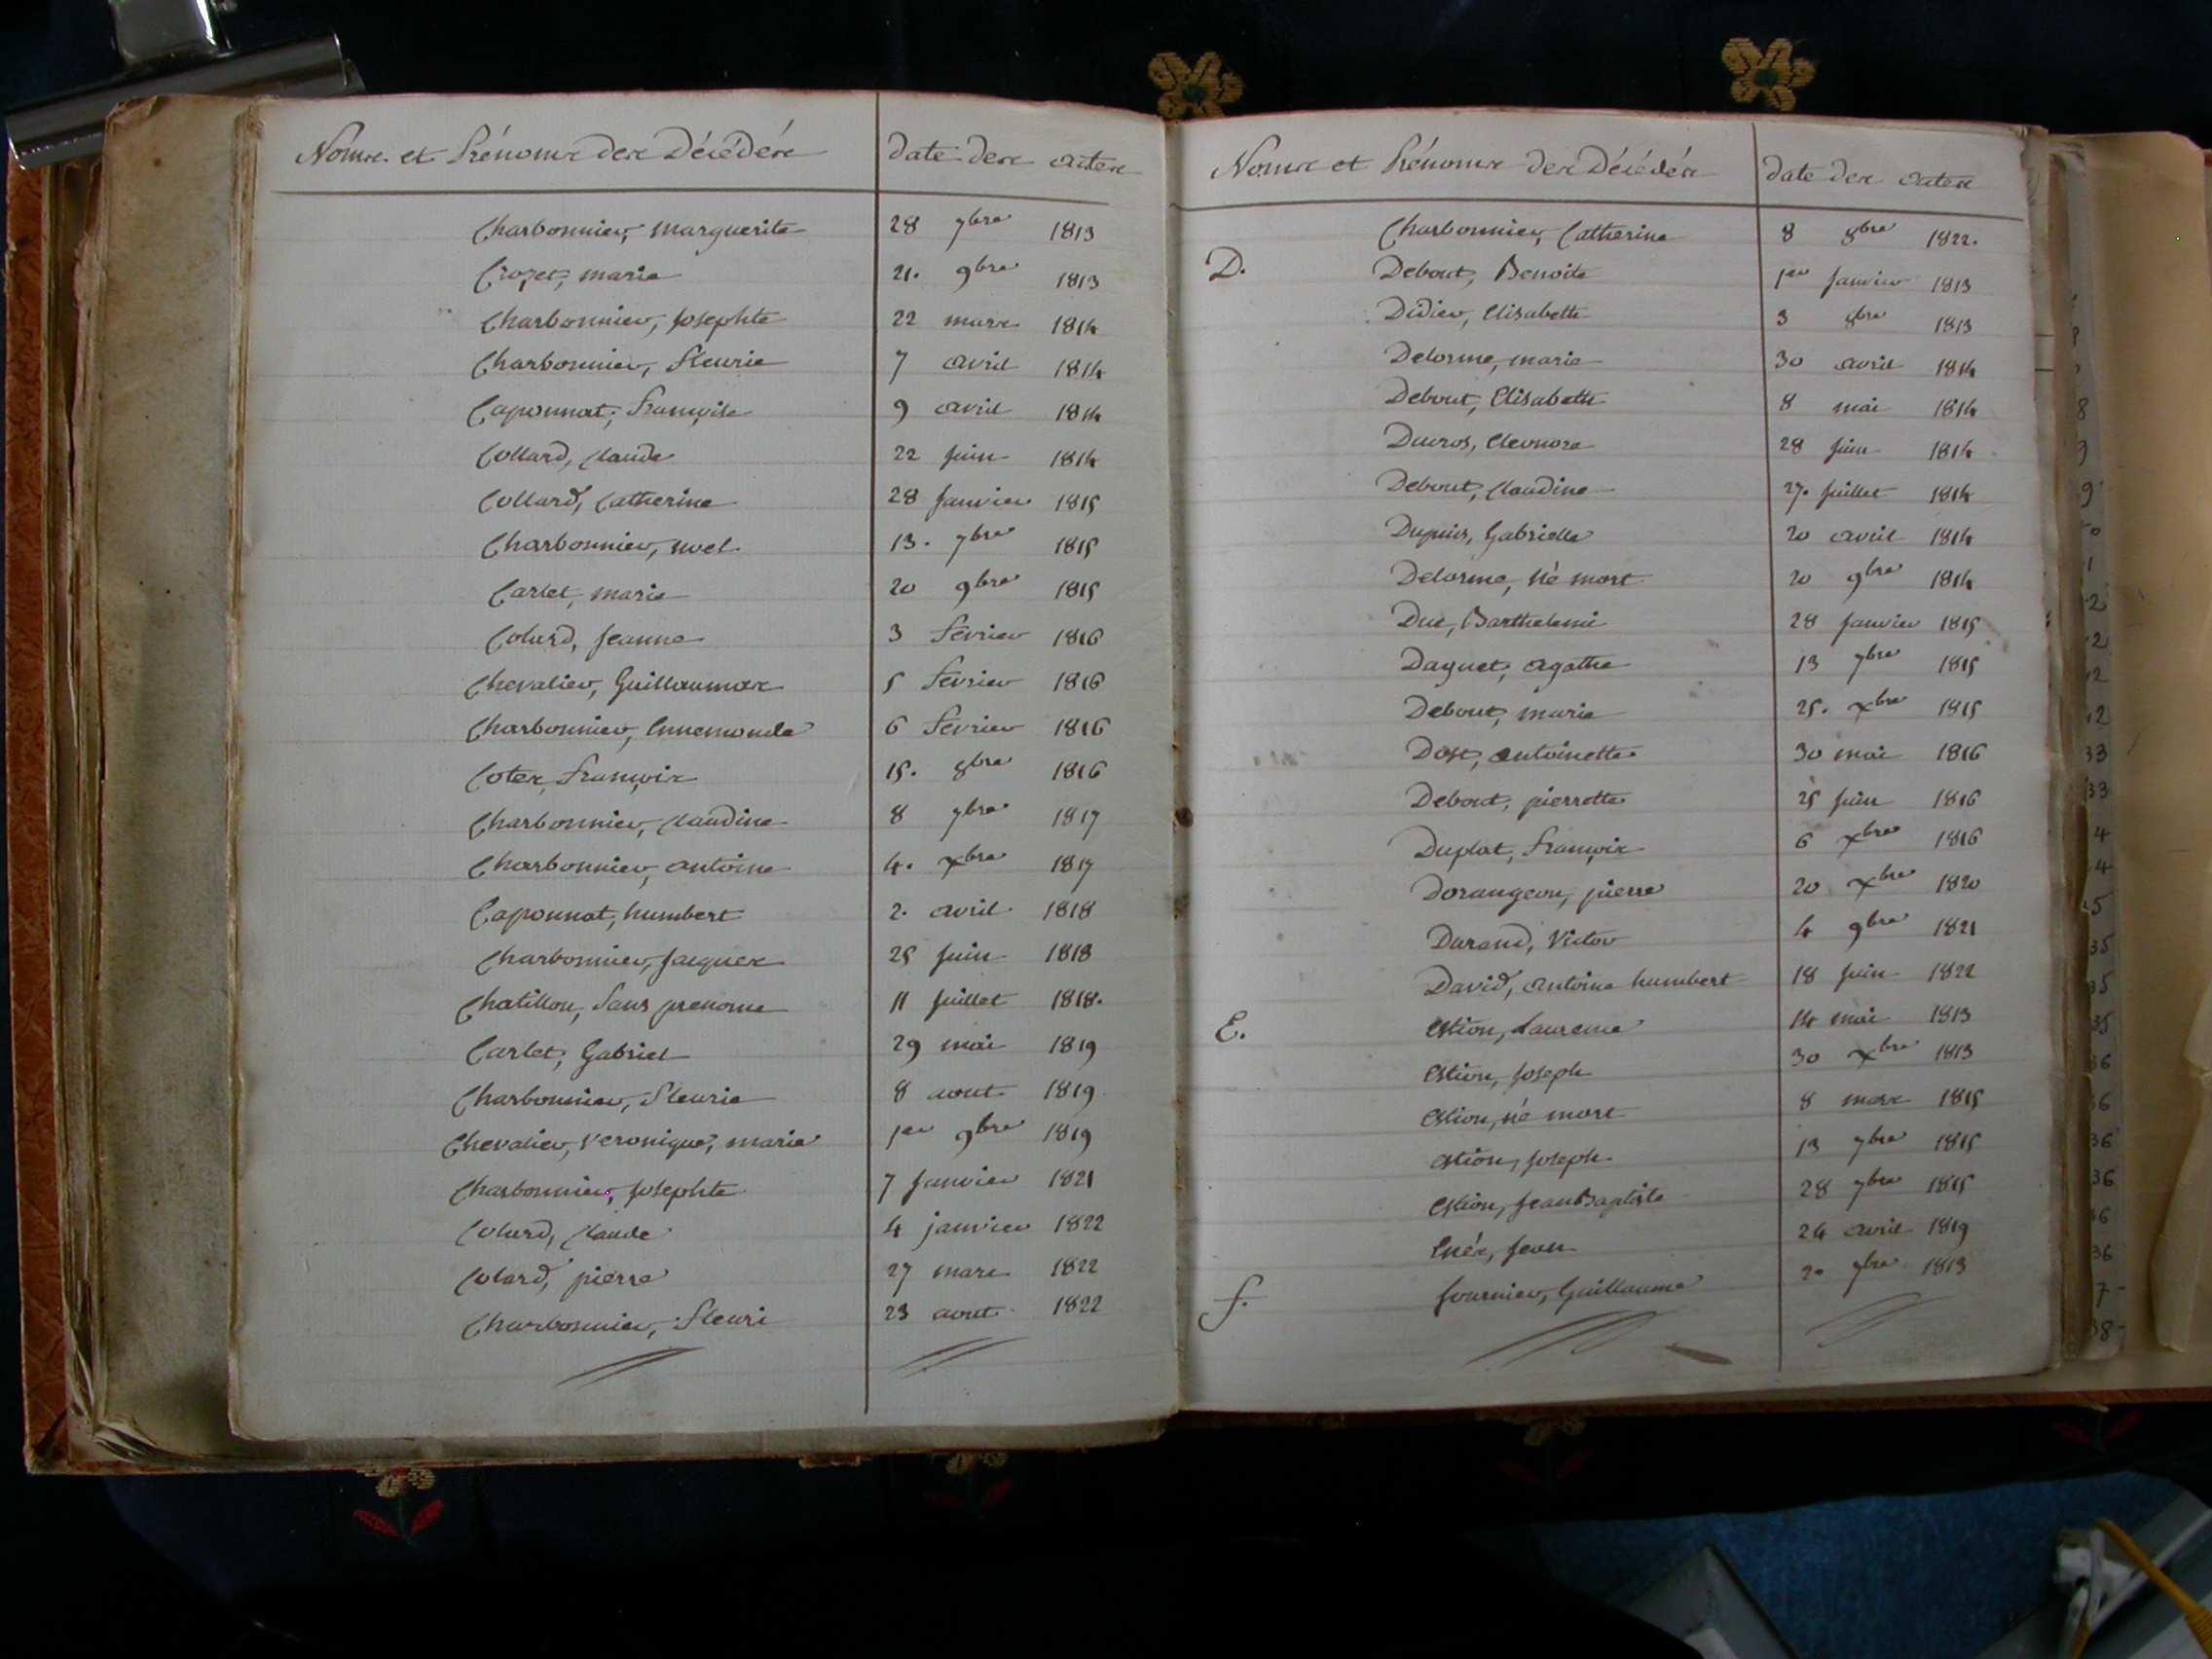 Noms et Prénoms des Décédés date des actes
Charbonnier, marguerite 28 7bre 1813
Crozet, marie 21. 9bre 1813
Charbonnier, Josephte 22 mars 1814
Charbonnier, fleurie 7 avril 1814
Caponnat, françoise 9 avril 1814
Collard, Claude 22 Juin 1814
Collard, Catherine 28 Janvier 1815
Charbonnier, noel 13. 7bre 1815
Carlet, marie 20 9bre 1815
Colard, Jeanne 3 fevrier 1816
Chevalier, Guillaumax 5 fevrier 1816
Charbonnier, Ennemonde 6 fevrier 1816
Cotex, françois 15. 8bre 1816
Charbonnier, Claudine 8 7bre 1817
Charbonnier, antoine 4. xbre 1817
Caponnat, humbert 2. avril 1818
Charbonnier, Jacques 25 Juin 1818
Chatillon, Sans prenoms 11 Juillet 1818.
Carlet, Gabriel 29 mai 1819
Charbonnier, fleurie 8 aout 1819
Chevalier, Veronique, marie 1er 9bre 1819
Charbonnier, Josephte 7 Janvier 1821
Colard, Claude 4 janvier 1822
Colard, pierre 27 mars 1822
Charbonnier, fleuri 23 aout 1822
Noms et Prénoms des Décédés date des actes
Charbonnier, Catherine 8 8bre 1822.
D. Debout, Benoite 1er Janvier 1813
Didier, Elisabeth 3 8bre 1813
Delorme, marie 30 avril 1814
Debout, Elisabeth 8 mai 1814
Ducros, Eleonore 28 Juin 1814
Debout, Claudine 27. Juillet 1814
Dupuis, Gabrielle 20 avril 1814
Delorme, né mort 20 9bre 1814
Duc, Barthelemi 28 Janvier 1815
Daguet, agathe 13 7bre 1815
Debout, marie 25. xbre 1815
Dost, antoinette 30 mai 1816
Debout, pierrette 25 Juin 1816
Duplat, françois 6 xbre 1816
Dorangeon, pierre 20 xbre 1820
Durand, Victor 4 9bre 1821
David, antoine humbert 18 Juin 1822
E. Estion, Laurence 14 mai 1813
Estion, Joseph 30 xbre 1813
Estion, né mort 8 mars 1815
Estion, Joseph 13 7bre 1815
Estion, Jean Baptiste 28 7bre 1815
Jean 24 avril 1819
f. fournier, Guillaume 2. 7bre 1813